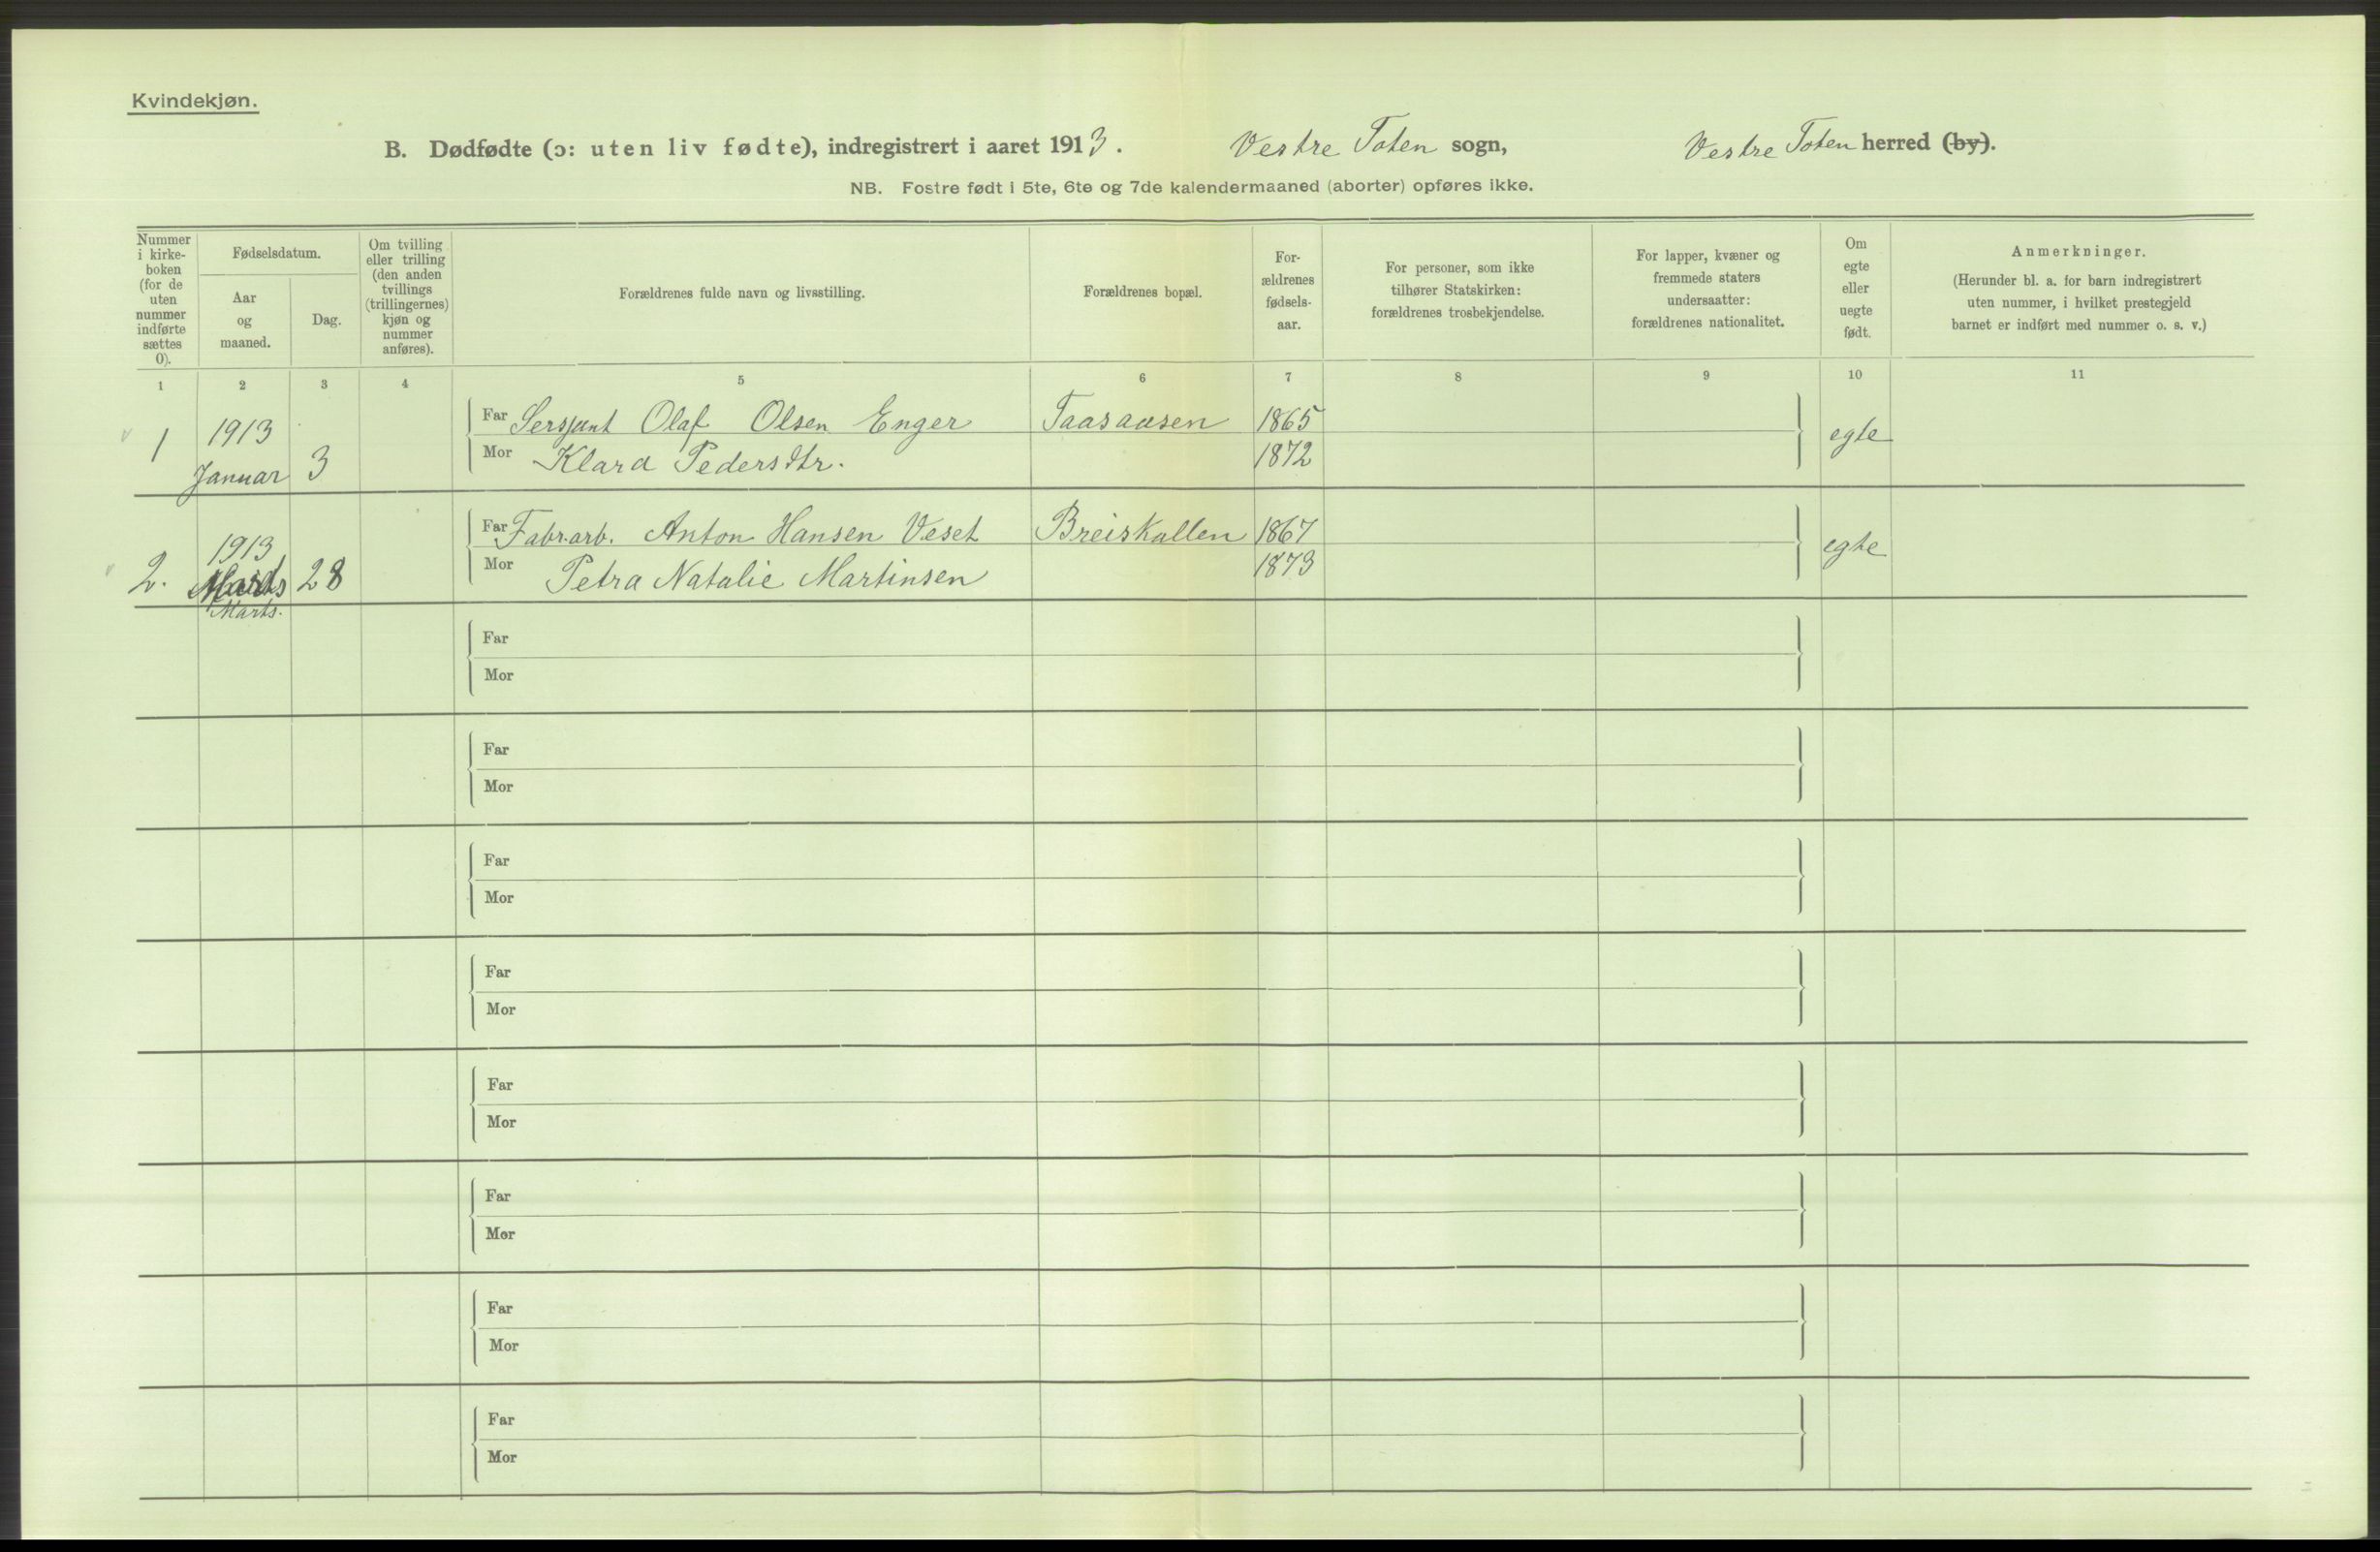 Kvindekjøn.
B. Dødfødte (ɔ: uten liv fødte), indregistrert i aaret 1913. Vestre Toten sogn, Vestre Toten herred (by).
NB. Fostre født i 5te, 6te og 7de kalendermaaned (aborter) opføres ikke.
Nummer
i kirke-
boken
(for de
uten
nummer
indførte
sættes
0).
Fødselsdatum.
Aar
og
maaned.
Dag.
Om tvilling
eller trilling
(den anden
tvillings
(trillingernes)
kjøn og
nummer
anføres).
Forældrenes fulde navn og livsstilling.
Forældrenes bopæl.
For-
ældrenes
fødsels-
aar.
For personer, som ikke
tilhører Statskirken:
forældrenes trosbekjendelse.
For lapper, kvæner og
fremmede staters
undersaatter:
forældrenes nationalitet.
Om
egte
eller
uegte
født.
Anmerkninger.
(Herunder bl. a. for barn indregistrert
uten nummer, i hvilket prestegjeld
barnet er indført med nummer o. s. v.)
1 2 3 4 5 6 7 8 9 10 11
1 1913 Januar 3
Far Sersjant Olaf Olsen Enger Taasaasen 1865 egte
Mor Klara Pedersdtr. 1872
2. 1913 Marts 28
Marts.
Far Fabr.arb. Anton Hansen Veset Breiskallen 1867 egte
Mor Petra Natalie Martinsen 1873
Far
Mor
Far
Mor
Far
Mor
Far
Mor
Far
Mor
Far
Mor
Far
Mor
Far
Mor